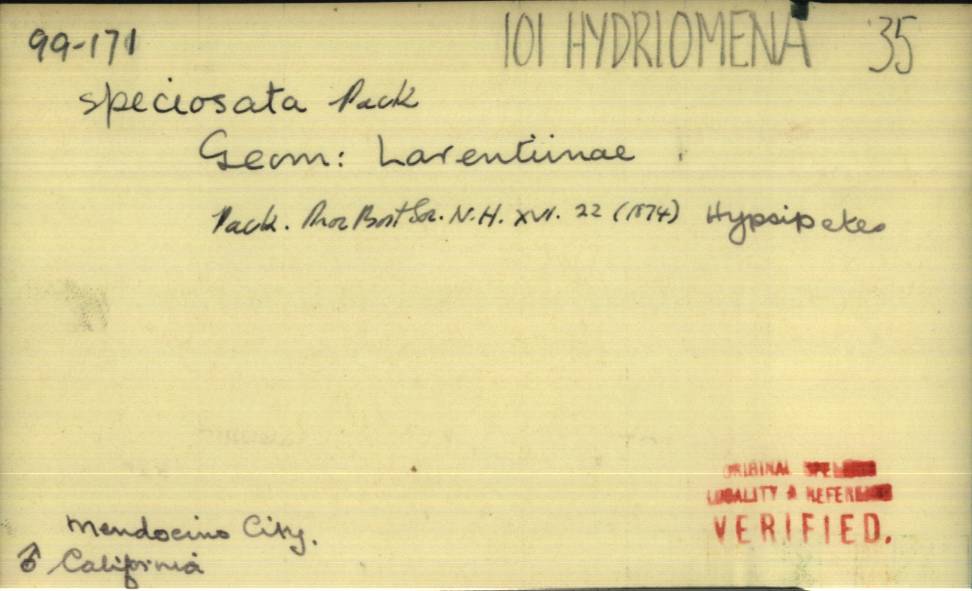 99-171 101 HYDRIOMENA 35
speciosata Pack
Geom: Larentiinae
Pack. Proc Bost Soc. N.H. XVI. 22 (1874) Hypsipetes
ORIGINAL
LOCALITY & REFERENCE
VERIFIED.
Mendocino City.
♂ California